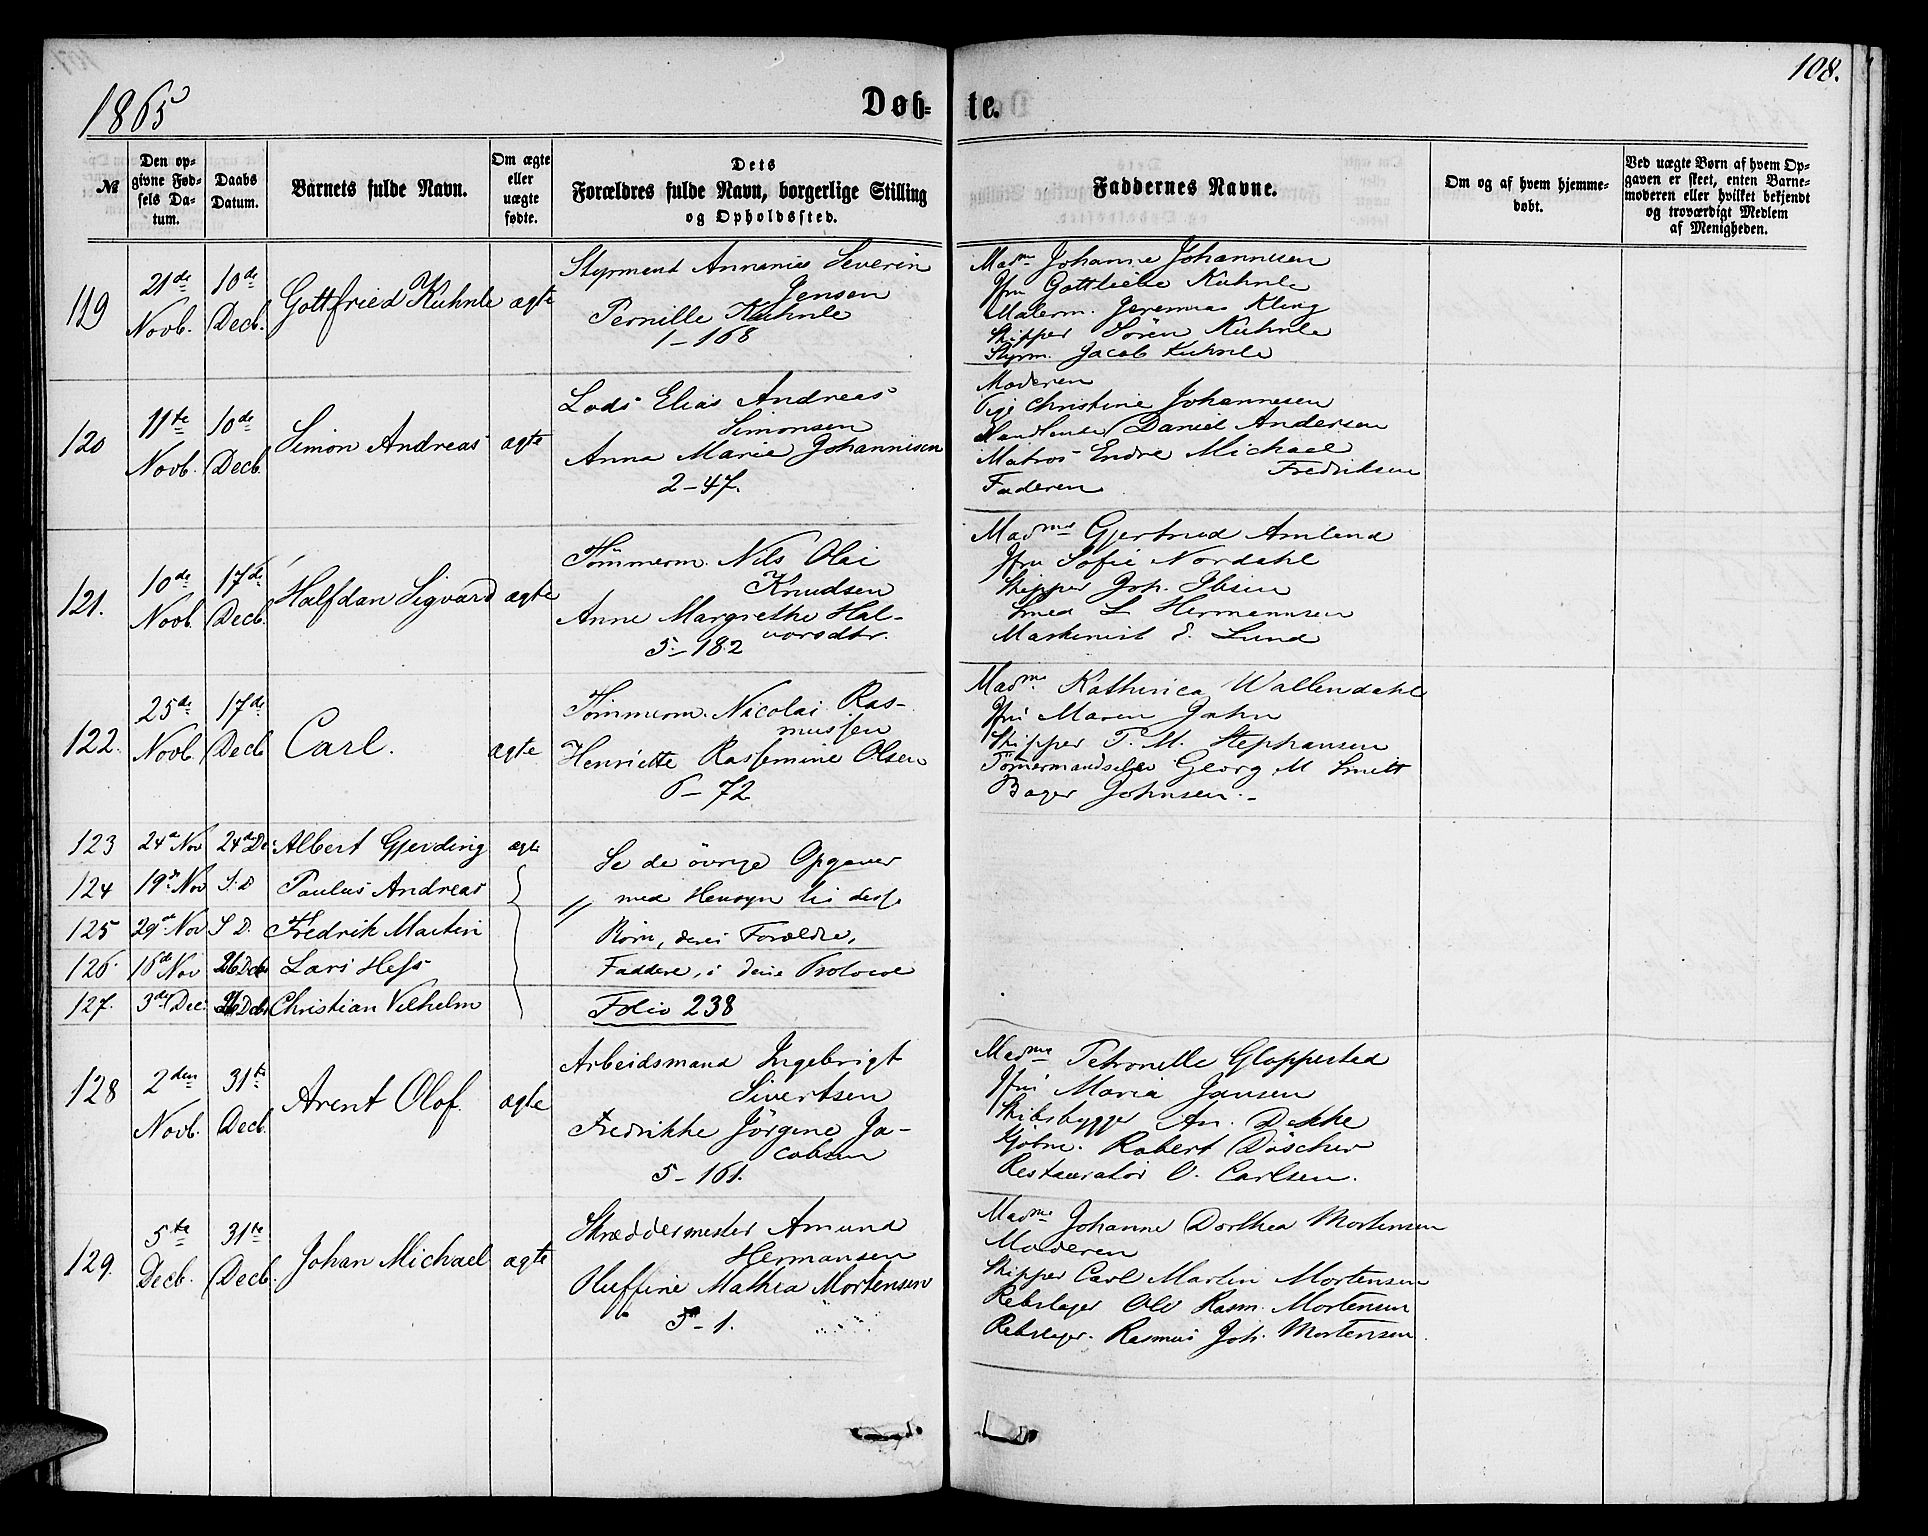 108.
1865
Døb-
te.
№
Den op-
givne Fød-
sels Da-
tum.
Daabs
Datum.
Barnets fulde Navn.
Om ægte
eller
uægte
fødte.
Dets
Forældres fulde Navn, borgerlige Stilling
og Opholdssted.
Faddernes Navne.
Om og af hvem hjemme-
døbt.
Ved uægte Børn af hvem Op-
gaven er skeet, enten Barne-
moderen eller hvilket bekjendt
og troværdigt Medlem
af Menigheden.
119
21de
Novb.
10de
Decb.
Gottfried Kuhnle
ægte
Styrmand Annanias Severin
Jensen
Pernille Kuhnle
1-168
Madm Johanne Johannesen
Jfru Gottliebe Kuhnle
Malerm. Jeremias Kling
Skipper Sören Kuhnle
Styrm. Jacob Kuhnle
120
11te
Novb.
10de
Decb.
Simon Andreas
ægte
Lods Elias Andreas
Simonsen
Anna Marie Johannesen
2-47.
Moderen
Pige Christine Johannesen
Daniel Andersen
Matros Endre Michael
Fredriksen
Faderen
121.
10de
Novb.
17de
Decb.
Halfdan Sigvard
ægte
Tömmerm. Nils Olai
Knudsen
Anne Margrethe Hal-
vorsdtr.
5-182
Madme Gjertrud Amlund
Jfru Sofie Nordahl
Skipper Joh. Ibsen
Smed L Hermannsen
Maskinist E. Lund
122.
25de
Novb.
17de
Decb
Carl.
ægte
Tömmerm. Nicolai Ras-
mussen
Henriette Rassemine Olsen
6-72
Madme Kathinca Wallendahl
Jfru Maren Jahn
Skipper T. M. Stephansen
Georg M Smitt
Bager Johnsen.
123
24de Nov
24de De
Albert Gjerding
ægte
Se de övrige Opgaver
124
19de Nov
S. D
Paulus Andreas
med Hensyn til disse
125
29de Nov
S D.
Fredrik Martin
Börn, deres Forældre,
126.
16de Nov
26 Decb
Lars Hess
Faddere, i denne Protocol
127.
3de Dec.
26 Decb
Christian Vilhelm
Folio 238
128
2den
Novb.
31te
Decb.
Arent Olof.
ægte
Arbeidsmand Ingebrigt
Sivertsen
Fredrikke Jörgine Ja-
cobsen
5-161.
Madme Petronelle Gloppestad
Jfru Maria Jansen
Skibsbygger An. Dekke
Kjöbm. Robert Döscher
Restauratör O. Carlsen.
129.
5te
Decb.
31te
Decb.
Johan Michael
ægte
Skræddermester Amund
Hermansen
Oluffine Mathea Mortensen
5-1.
Madme Johanne Dorthea Mortensen
Moderen
Skipper Carl Martin Mortensen
Rebslager Ole Rasm. Mortensen
Rebslager. Rasmus Joh. Mortensen